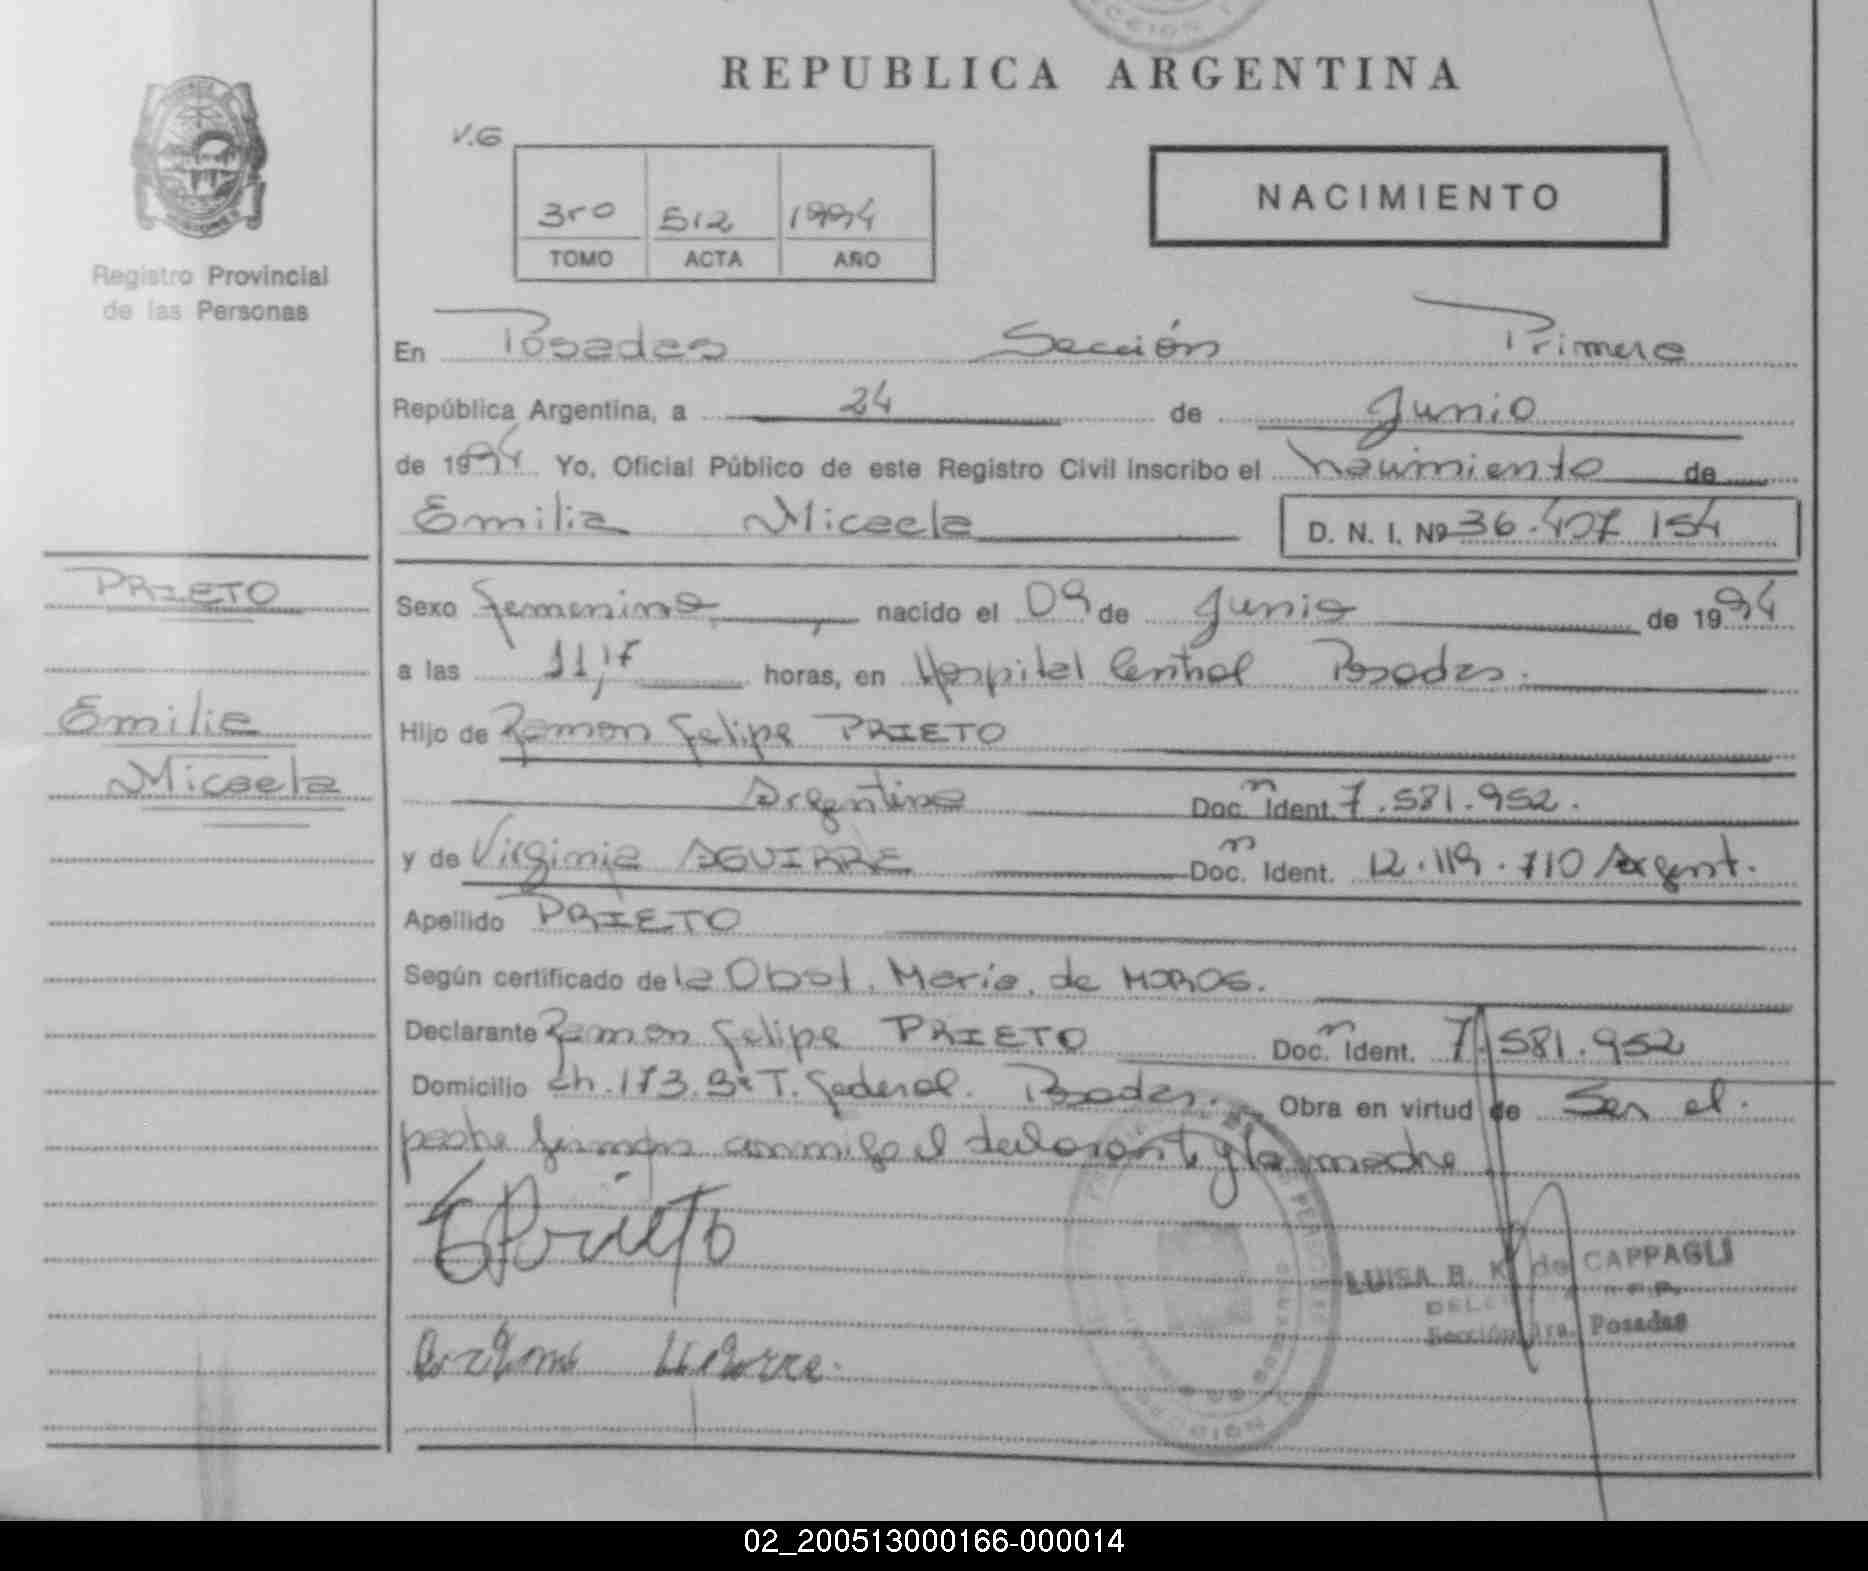 REPUBLICA ARGENTINA
V.G
NACIMIENTO
3ro 512 1994
TOMO ACTA AÑO
Registro Provincial
de las Personas
En Posadas Sección Primera
República Argentina, a 24 de Junio
de 1994 Yo, Oficial Público de este Registro Civil inscribo el nacimiento de
Emilia Micaela D. N. I. Nº 36.407.154
PRIETO
Sexo femenino, nacido el 09 de Junio de 1994
a las 11,17 horas, en Hospital Central Posadas.
Emilia
Hijo de Ramon Felipe PRIETO
Micaela
Argentino Doc. Ident. 7.581.952.
y de Virginia AGUIRRE Doc. Ident. 12.119.710 Argent.
Apellido PRIETO
Según certificado de la Obst. Maria. de MOROS.
Declarante Ramon Felipe PRIETO Doc. Ident. 7.581.952
Domicilio Ch. 173. Bº T. Federal. Posadas. Obra en virtud de Ser el
padre firman conmigo el declarante y la madre
Prieto
LUISA B. K. de CAPPAGLI
Sección 1ra. Posadas
02_200513000166-000014